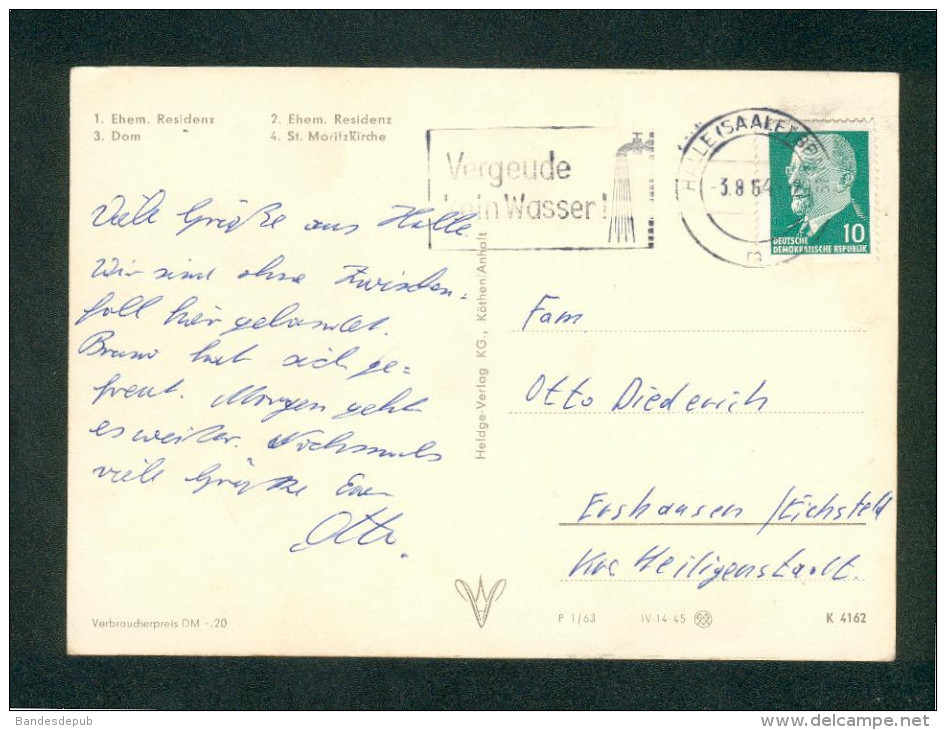 1. Ehem. Residenz 2. Ehem. Residenz
3. Dom 4. St. Moritzkirche
Vergeude
kein Wasser!
HALLE (SAALE)
-3.8.64
10
DEUTSCHE
DEMOKRATISCHE REPUBLIK
Viele Grüße aus Halle.
Wir sind ohne Zwischen-
fall hier gelandet.
Bruno hat sich ge=
freut. Morgen geht
es weiter. Nochmals
viele Grüße Euer
Otto.
Heldge-Verlag KG., Köthen/Anhalt
Fam
Otto Diederich
Ershausen /Eichsfeld
Krs Heiligenstadt.
Verbraucherpreis DM -,20
P 1/63 IV-14-45 K 4162
Bandesdepub
delcampe.net